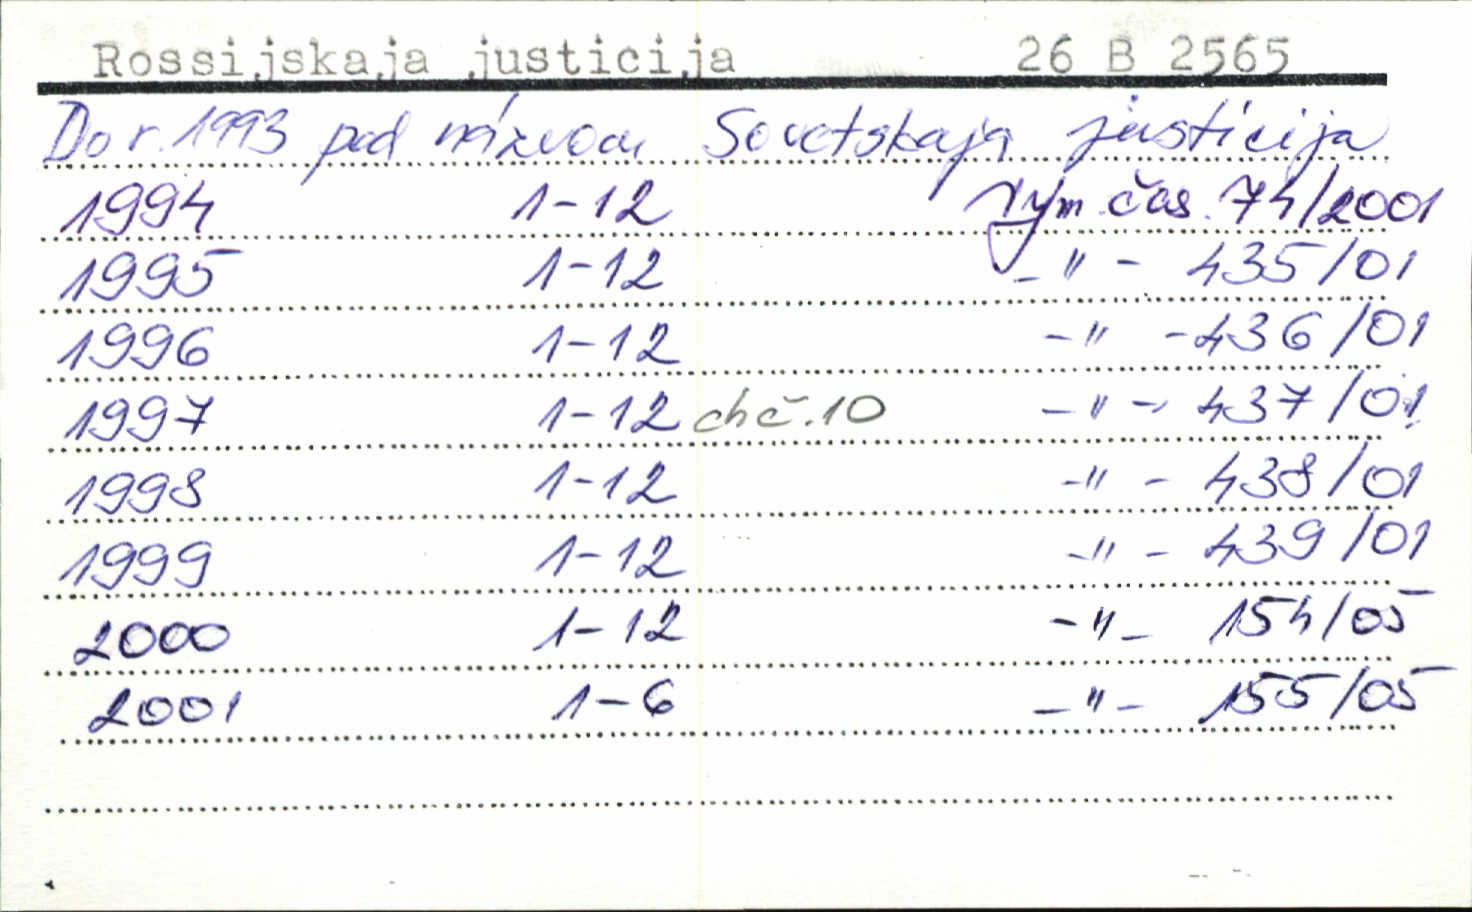 Rossijskaja justicija 26 B 2565
Do r. 1993 pod názvom Sovetskaja justicija
1994 1-12 Vým. čas. 74/2001
1995 1-12 -"- 435/01
1996 1-12 -"- 436/01
1997 1-12 ch č. 10 -"- 437/01
1998 1-12 -"- 438/01
1999 1-12 -"- 439/01
2000 1-12 -"- 154/05
2001 1-6 -"- 155/05